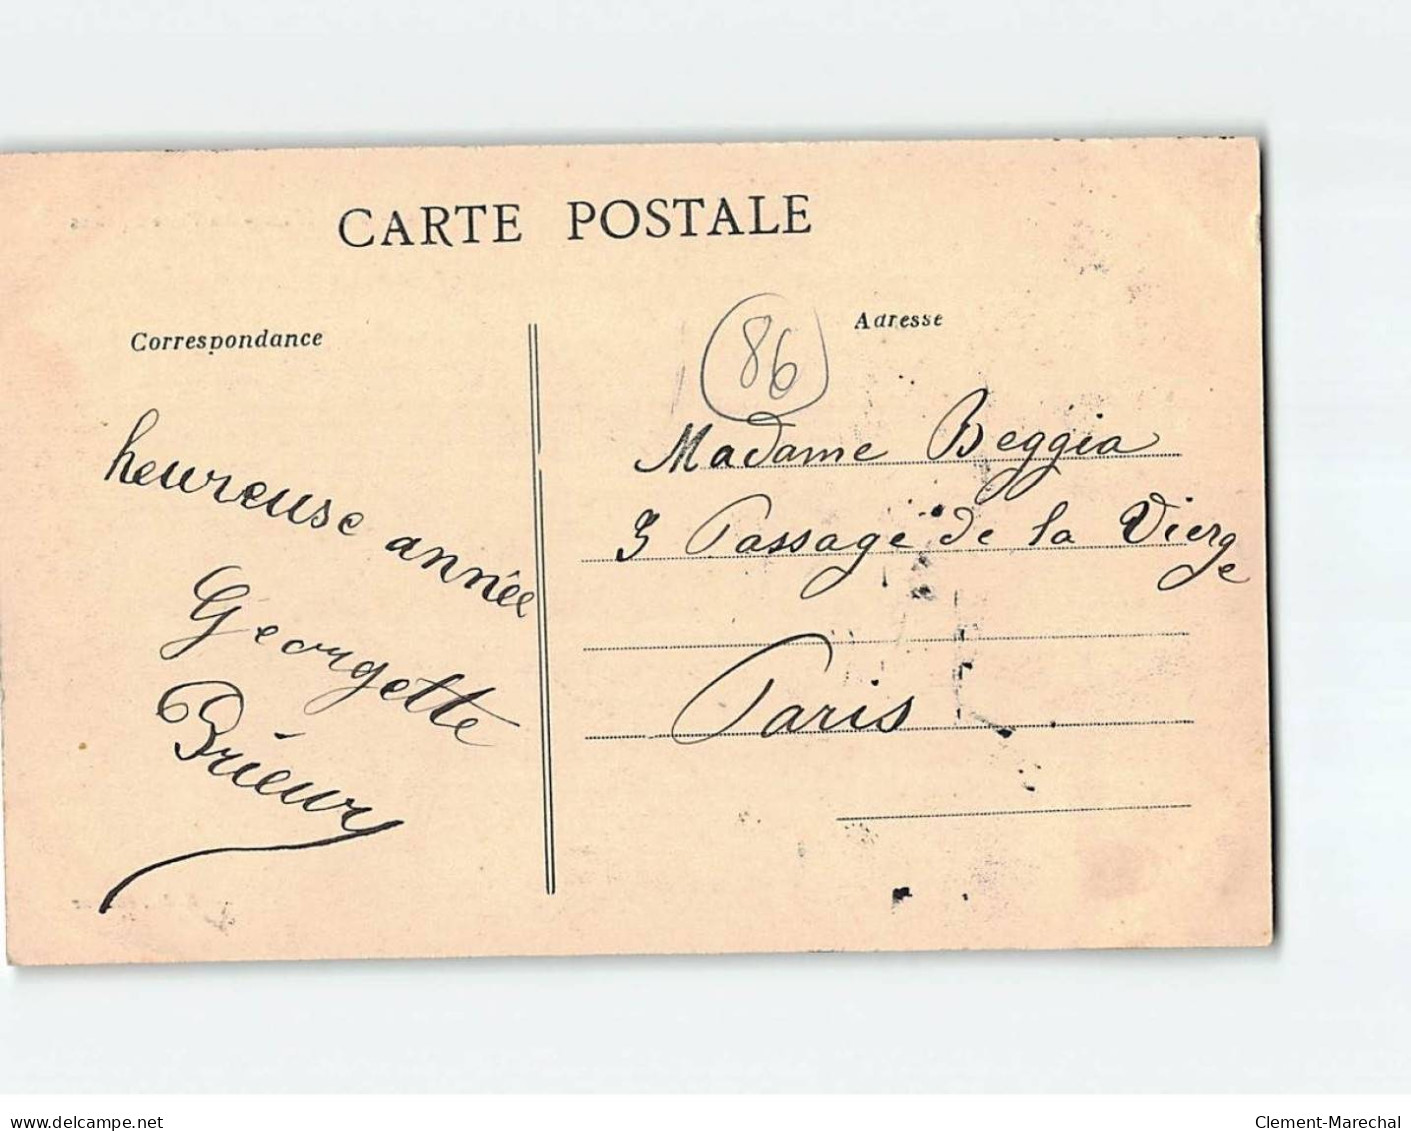 CARTE POSTALE
Correspondance
heureuse année
Georgette
Prieur
Adresse
86
Madame Beggia
3 Passage de la Vierge
Paris
www.delcampe.net
Clement-Marechal